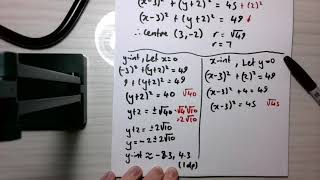 (x-3)² + (y+2)² = 45 + (2)²
(x-3)² + (y+2)² = 49
∴ centre (3,-2) r = √49
r = 7
y-int, Let x=0
(-3)² + (y+2)² = 49
9 + (y+2)² = 49
(y+2)² = 40 √40
y+2 = ±√40 √4√10
=2√10
y+2 = ±2√10
y = -2±2√10
y-int ≈ -8.3, 4.3
(1dp)
x-int, Let y=0
(x-3)² + (2)² = 49
(x-3)² + 4 = 49
(x-3)² = 45 √45